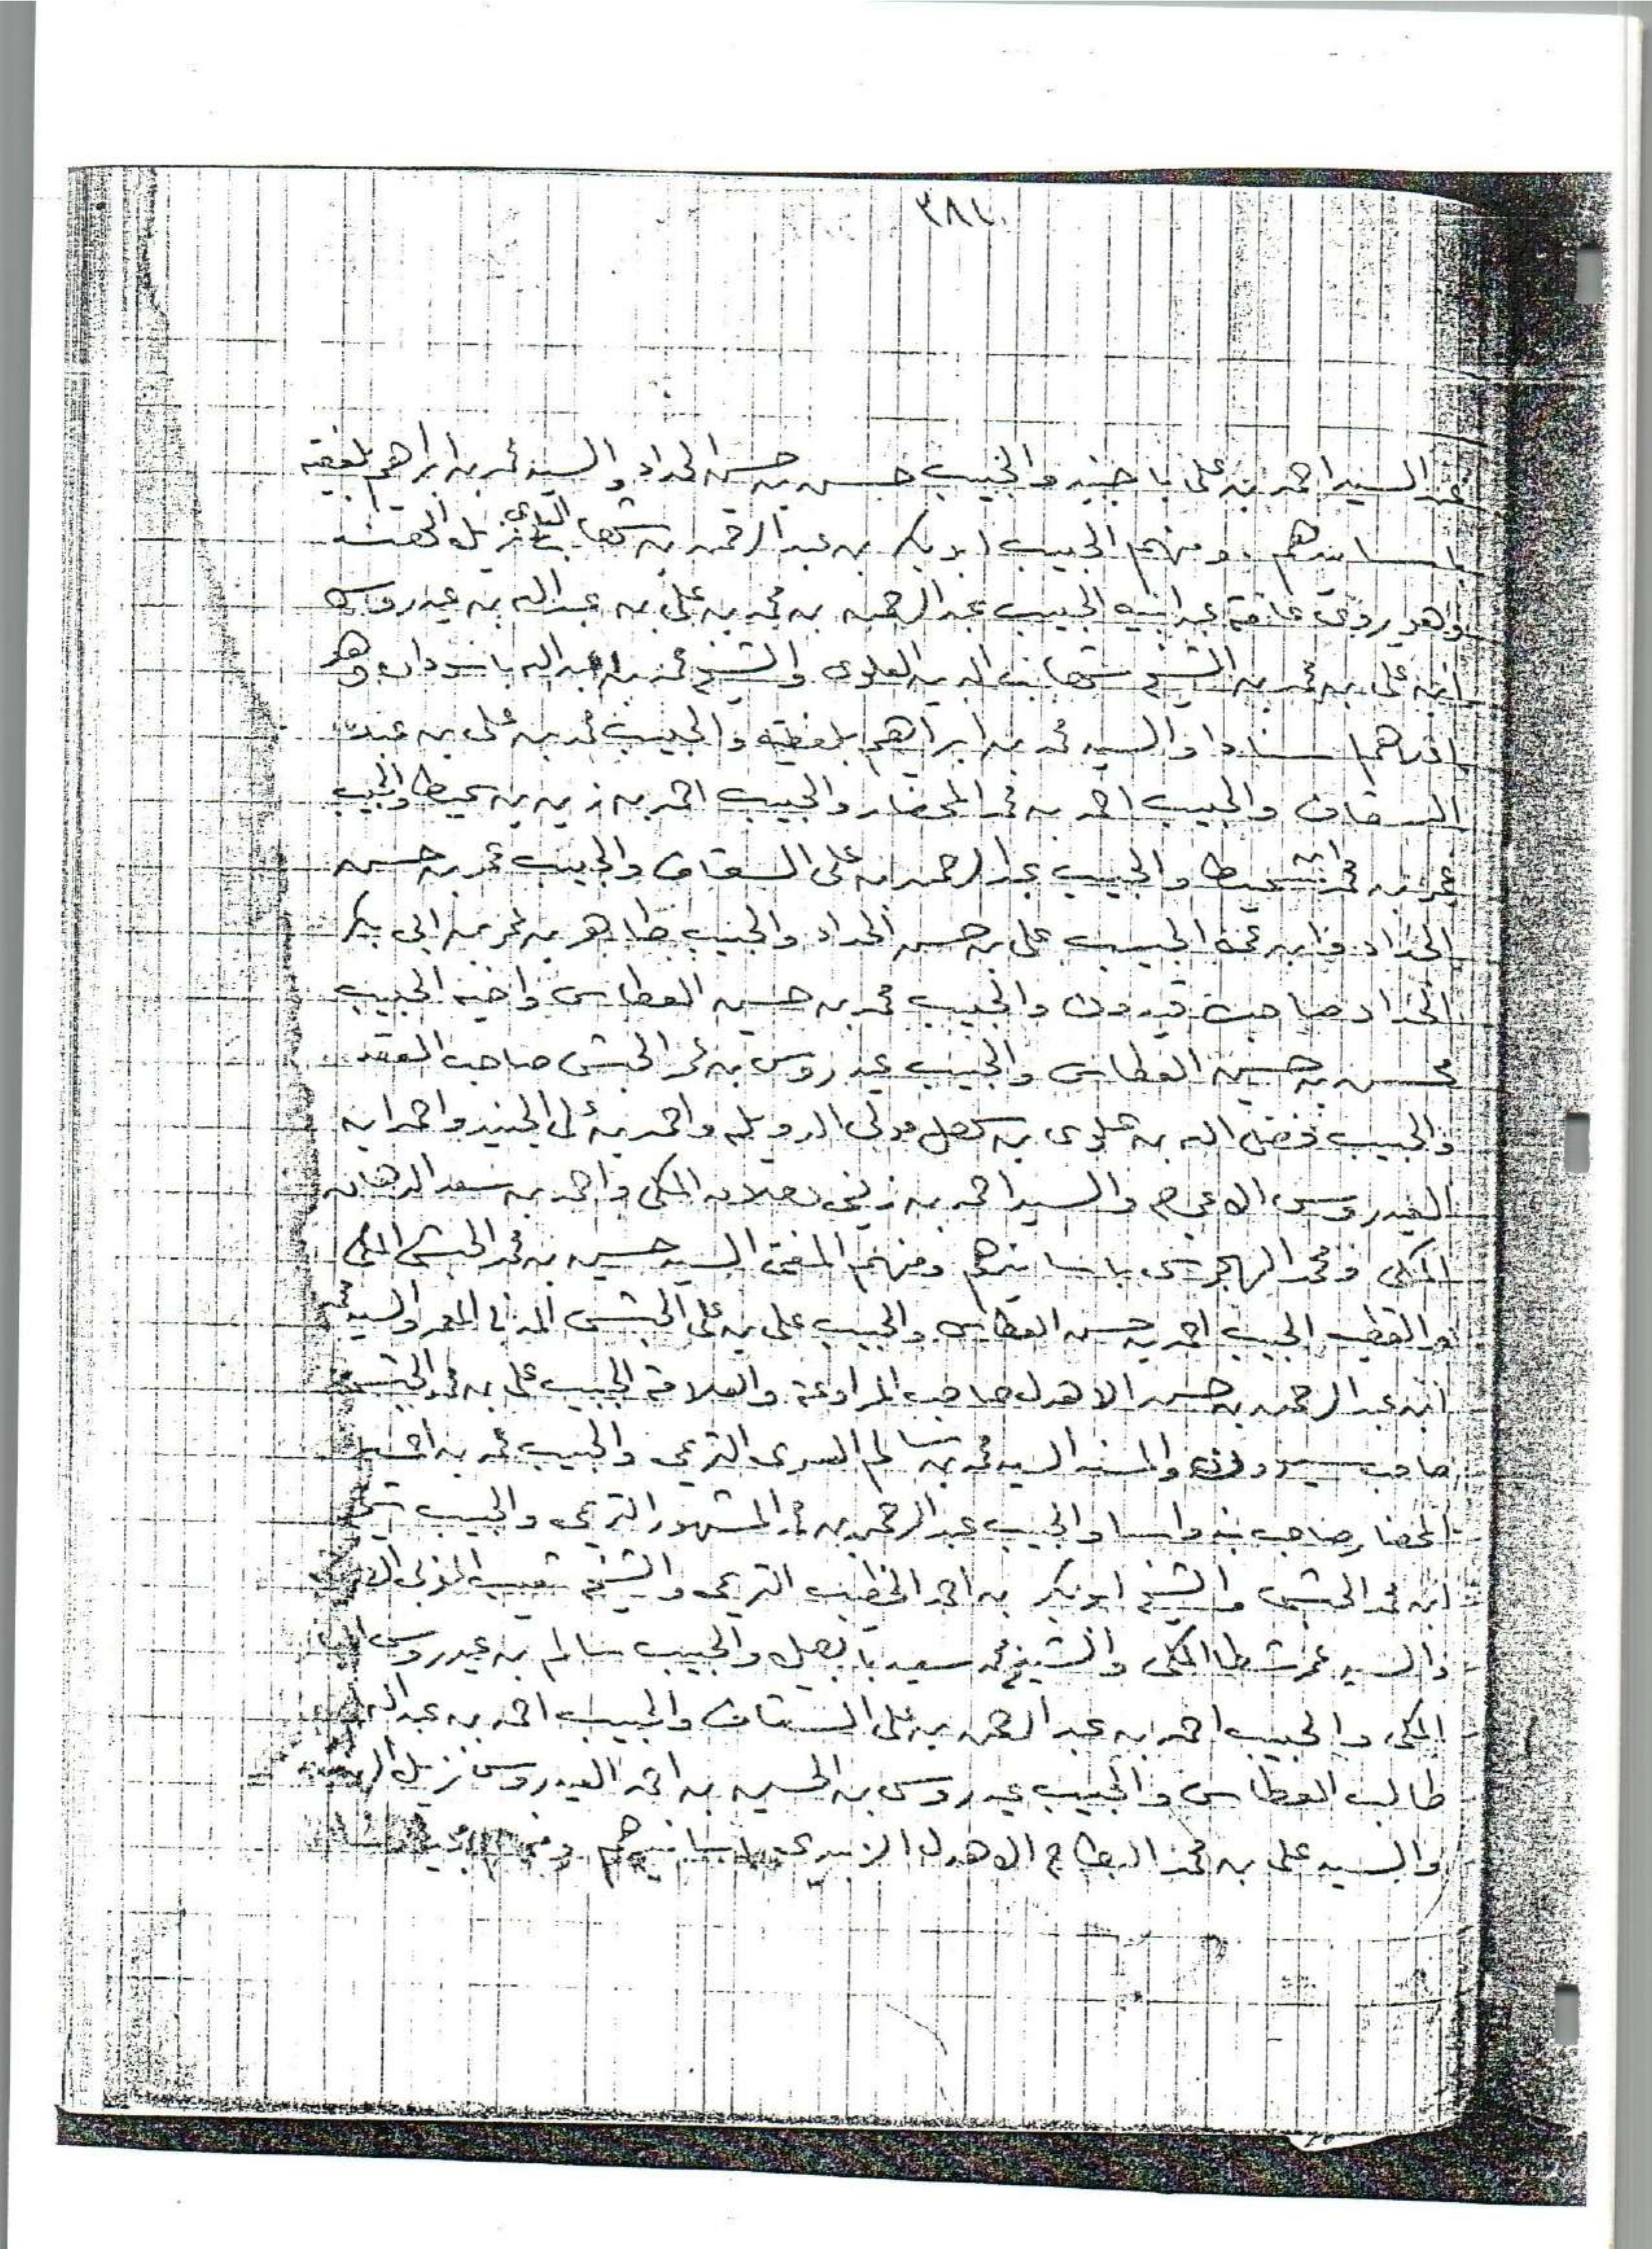 ٣٨١
عن السيد احمد بن علي باجنيد والحبيب حسن بن حسين الحداد والسيد محمد بن ابراهيم بلفقيه
باسانيدهم ومنهم الحبيب ابو بكر بن عبد الرحمن بن شهاب الدين نزيل الهند
وهو يروي عامة عن ابيه الحبيب عبد الرحمن بن محمد بن علي بن عبد الله بن عيدروس
ابن علي بن محمد بن الشيخ شهاب الدين العلوي والشيخ محمد بن عبد الله باسودان وهو
اسنادا والسيد محمد بن ابراهيم بلفقيه والحبيب محمد بن علي بن
السقاف والحبيب احمد بن محمد المحضار والحبيب احمد بن زين بن سميط والحبيب
عمر بن محمد بن سميط والحبيب عبد الرحمن بن علي السقاف والحبيب عمر بن حسن
الحداد وابن عمه الحبيب علي بن حسن الحداد والحبيب طاهر بن عمر بن ابي بكر
الحداد صاحب قيدون والحبيب محمد بن حسين العطاس واخيه الحبيب
محسن بن حسين العطاس والحبيب عيدروس بن عمر الحبشي صاحب العقد
والحبيب فضل الله بن علوي بن سهل مولى الدويله واحمد بن علي الجنيد واحمد بن
العيدروس والسيد احمد بن زيني دحلان المكي واحمد بن سعد الدهان
المكي ومحمد الهجرسي باسانيدهم ومنهم المفتي السيد حسين بن محمد الحبشي المكي
والقطب الحبيب احمد بن حسن العطاس والحبيب علي بن علي الحبشي المدني المعمر والسيد محمد
ابن عبد الرحمن بن حسن الاهدل صاحب المراوعة والعلامة الحبيب علي بن محمد الحبشي
صاحب سيوون والمسند السيد محمد بن سالم السري التريمي والحبيب محمد بن احمد
المحضار صاحب بندواسا والحبيب عبد الرحمن بن محمد المشهور التريمي والحبيب شيخ
ابن محمد الحبشي والشيخ ابو بكر بن احمد الخطيب التريمي والشيخ شعيب المغربي
والسيد عمر شطا المكي والشيخ محمد سعيد بابصيل والحبيب سالم بن عيدروس البار
المكي والحبيب احمد بن عبد الرحمن بن علي السقاف والحبيب احمد بن عبد الله
طالب العطاس والحبيب عيدروس بن الحسين بن احمد العيدروس نزيل الهند
والسيد علي بن محمد البطاح الاهدل الزبيدي باسانيدهم ومنهم